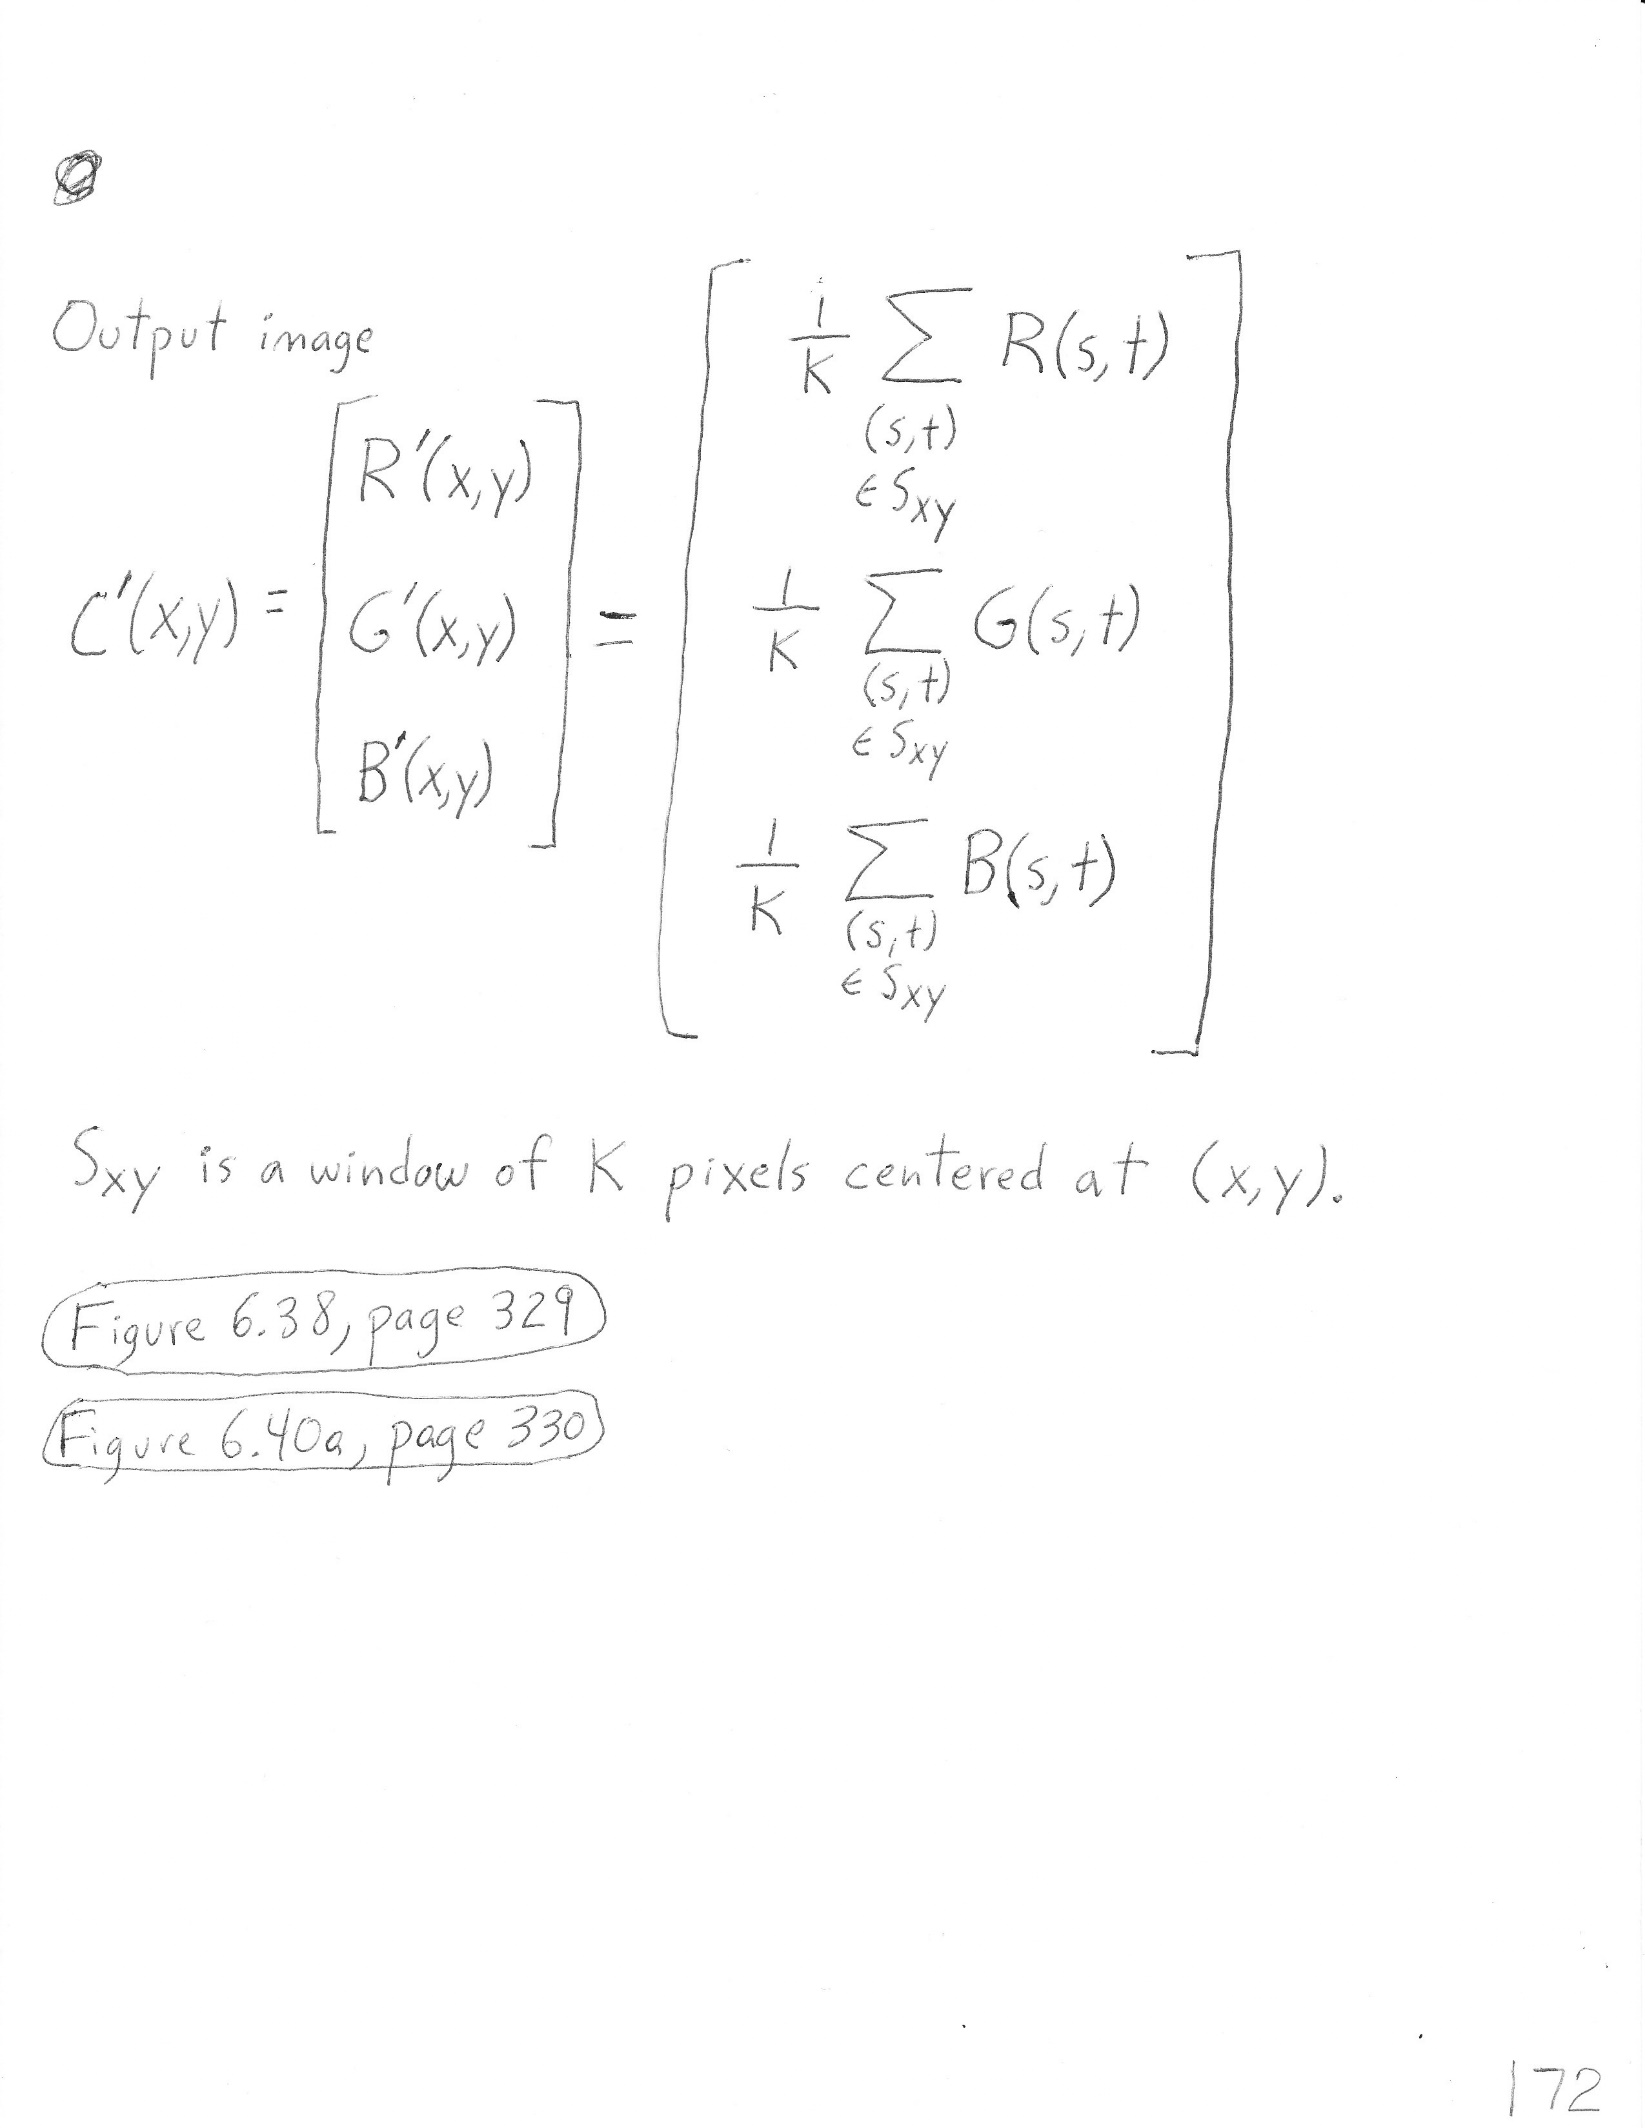 Output image
C'(x,y) = [ R'(x,y) G'(x,y) B'(x,y) ] = [ 1/K ∑ (s,t) ∈ Sxy R(s,t)
1/K ∑ (s,t) ∈ Sxy G(s,t)
1/K ∑ (s,t) ∈ Sxy B(s,t) ]
Sxy is a window of K pixels centered at (x,y).
Figure 6.38, page 329
Figure 6.40a, page 330
172